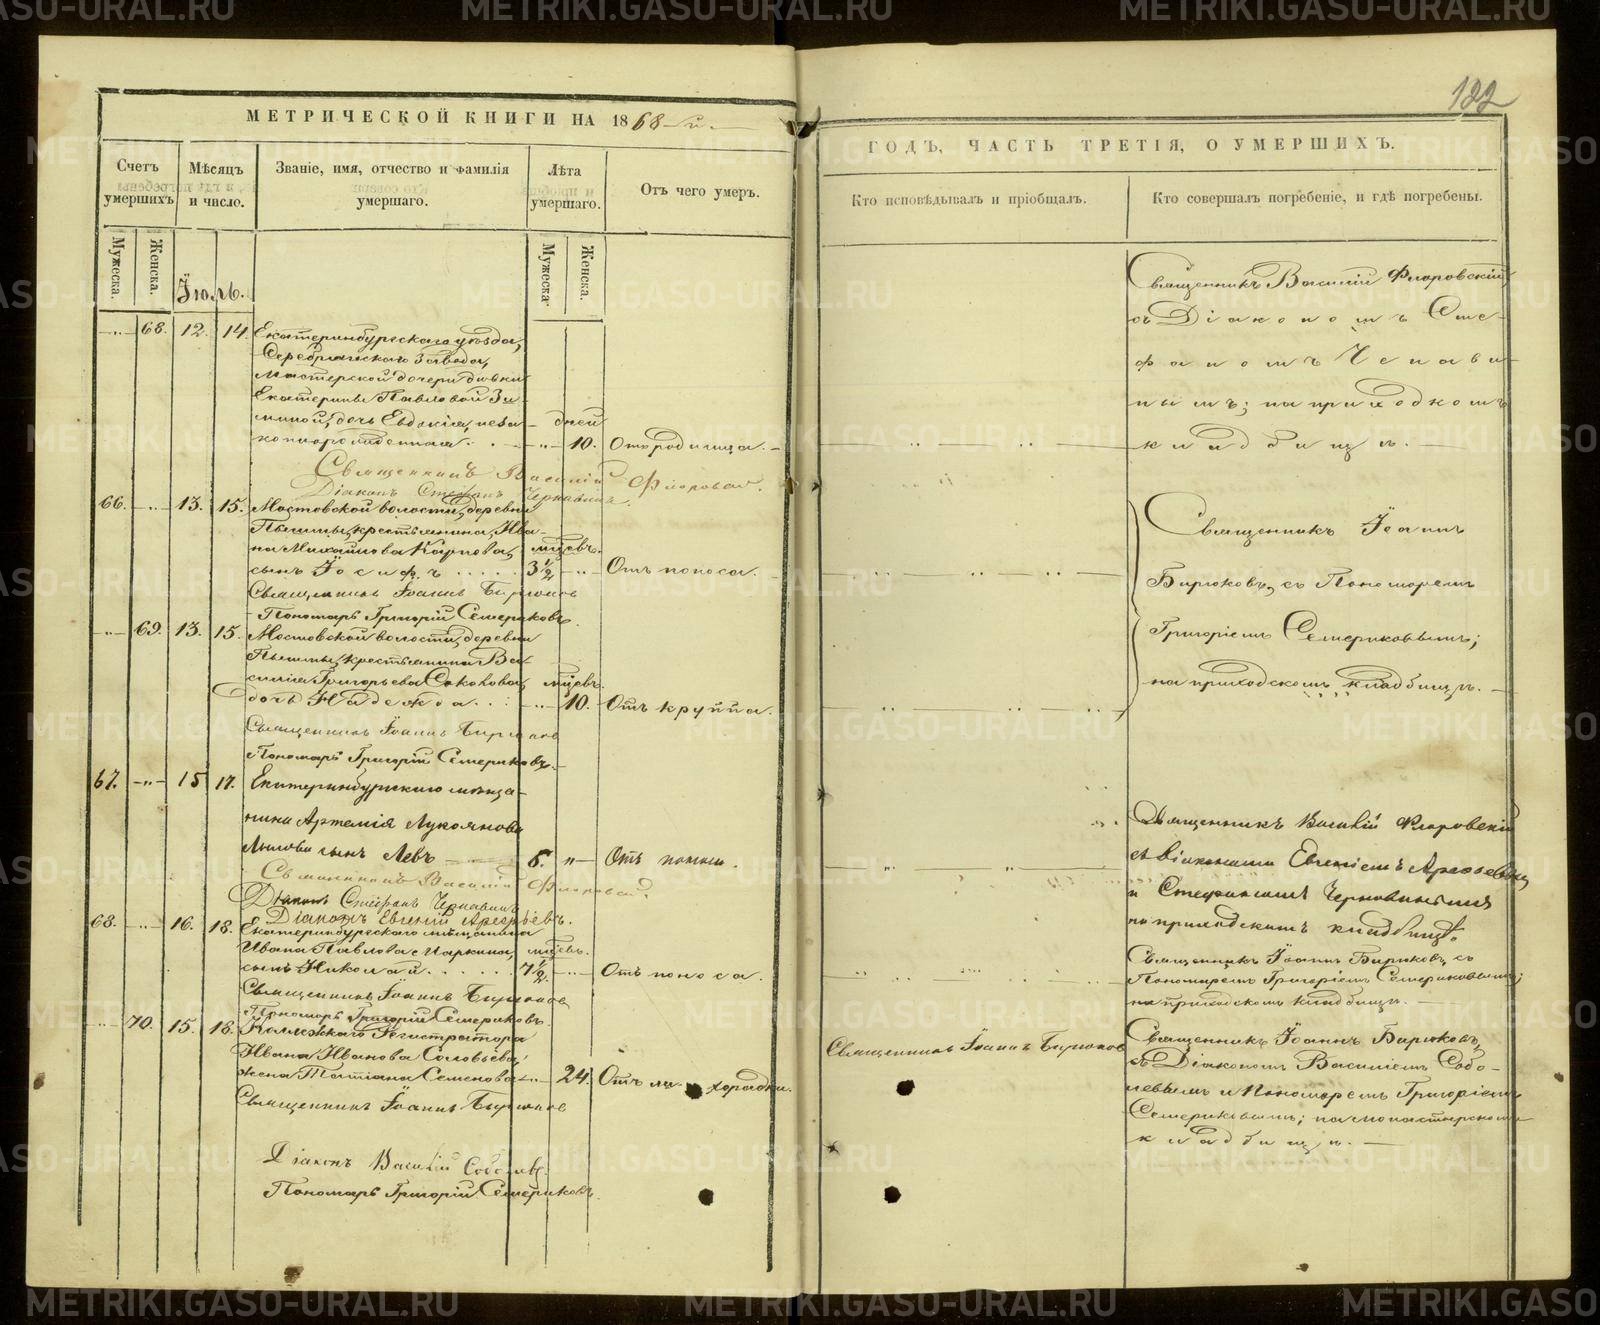 METRIKI.GASO-URAL.RU
122
МЕТРИЧЕСКОЙ КНИГИ НА 1868-й.
ГОДЪ, ЧАСТЬ ТРЕТІЯ, О УМЕРШИХЪ.
Счетъ умершихъ
Мѣсяцъ и число.
Званіе, имя, отчество и фамилія умершаго.
Лѣта умершаго.
Отъ чего умеръ.
Кто исповѣдывалъ и пріобщалъ.
Кто совершалъ погребеніе, и гдѣ погребены.
Мужеска.
Женска.
Мужеска
Женска.
Іюль.
68. 12. 14. Екатеринбургскаго уѣзда,
Серебрянскаго Завода,
мастерской дочери дѣвки
Екатерины Павловой Зи-
миной, дочь Евдокія, неза-
коннорожденная
дней
10. Отъ родимца.
Священникъ Василій Флоровскій
съ Діакономъ Сте-
фаномъ
на приходскомъ
кладбищѣ.
Священникъ Василій Флоровск.
Діаконъ Стефанъ
66. 13. 15. Мостовской волости, деревни
Пышмы, крестьянина Ива-
на Михайлова Карпова,
сынъ Іосифъ
мцевъ.
3 1/2 Отъ поноса.
Священникъ Іоаннъ Бирюковъ
Пономарь Григорій Семериковъ.
Священникъ Іоаннъ
Бирюковъ, съ Пономаремъ
Григоріемъ Семериковымъ;
на приходскомъ кладбищѣ.
69. 13. 15. Мостовской волости, деревни
Пышмы, крестьянина Ва-
силія Григорьева Соколова,
дочь Надежда
мцевъ.
10. Отъ круппа.
Священникъ Іоаннъ Бирюковъ
Пономарь Григорій Семериковъ.
67. 15 17. Екатеринбургскаго мѣща-
нина Артемія Лукоянова
сынъ Левъ
Отъ
Священникъ Василій Флоровскій
Діаконъ Стефанъ
Діаконъ Евгеній
Священникъ Василій Флоровскій
съ Діаконами Евгеніемъ
и Стефаномъ
на приходскомъ кладбищѣ.
68. 16. 18. Екатеринбургскаго мѣщанина
Ивана Павлова
сынъ Николай
мцевъ.
7 1/2 Отъ поноса.
Священникъ Іоаннъ Бирюковъ
Пономарь Григорій Семериковъ.
Священникъ Іоаннъ Бирюковъ, съ
Пономаремъ Григоріемъ Семериковымъ;
на приходскомъ кладбищѣ.
70. 15. 18. Коллежскаго Регистратора
Ивана Иванова Соловьева,
жена Татіана Семенова
24. Отъ лихорадки.
Священникъ Іоаннъ Бирюковъ
Священникъ Іоаннъ Бирюковъ
Діаконъ Василій Соболевъ.
Пономарь Григорій Семериковъ.
Священникъ Іоаннъ Бирюковъ,
съ Діакономъ Василіемъ Собо-
левымъ и Пономаремъ Григоріемъ
Семериковымъ; на монастырскомъ
кладбищѣ.